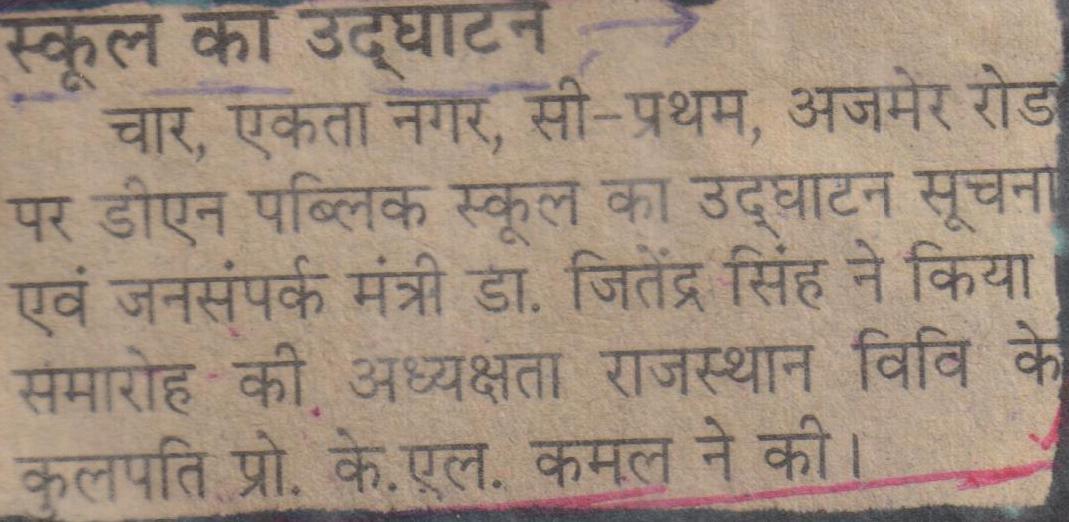 स्कूल का उद्‌घाटन
चार, एकता नगर, सी-प्रथम, अजमेर रोड
पर डीएन पब्लिक स्कूल का उद्‌घाटन सूचना
एवं जनसंपर्क मंत्री डा. जितेंद्र सिंह ने किया
समारोह की अध्यक्षता राजस्थान विवि के
कुलपति प्रो. के.एल. कमल ने की।